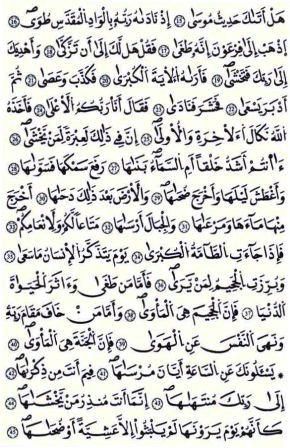 هَلْ أَتَىٰكَ حَدِيثُ مُوسَىٰ ١٥ إِذْ نَادَىٰهُ رَبُّهُ بِالْوَادِ الْمُقَدَّسِ طُوَى ١٦
اَذْهَبِ اِلَىٰ فِرْعَوْنَ إِنَّهُ طَغَىٰ ١٧ فَقُلْ هَل لَّكَ إِلَىٰ أَن تَزَّكَّىٰ ١٨ وَأَهْدِيَكَ
إِلَىٰ رَبِّكَ فَتَخْشَىٰ ١٩ فَأَرَىٰهُ الْآيَةَ الْكُبْرَىٰ ٢٠ فَكَذَّبَ وَعَصَىٰ ٢١ ثُمَّ
أَدْبَرَ يَسْعَىٰ ٢٢ فَحَشَرَ فَنَادَىٰ ٢٣ فَقَالَ أَنَا رَبُّكُمُ الْأَعْلَىٰ ٢٤ فَأَخَذَهُ
اللَّهُ نَكَالَ الْآخِرَةِ وَالْأُولَىٰ ٢٥ إِنَّ فِي ذَٰلِكَ لَعِبْرَةً لِّمَن يَخْشَىٰ ٢٦
ءَآنتُمْ أَشَدُّ خَلْقًا أَمِ السَّمَآءُ بَنَىٰهَا ٢٧ رَفَعَ سَمْكَهَا فَسَوَّىٰهَا ٢٨
وَأَغْطَشَ لَيْلَهَا وَأَخْرَجَ ضُحَىٰهَا ٢٩ وَالْأَرْضَ بَعْدَ ذَٰلِكَ دَحَىٰهَا ٣٠ أَخْرَجَ
مِنْهَا مَآءَهَا وَمَرْعَىٰهَا ٣١ وَالْجِبَالَ أَرْسَىٰهَا ٣٢ مَتَٰعًا لَّكُمْ وَلِأَنْعَٰمِكُمْ ٣٣
فَإِذَا جَآءَتِ الطَّآمَّةُ الْكُبْرَىٰ ٣٤ يَوْمَ يَتَذَكَّرُ الْإِنسَٰنُ مَا سَعَىٰ ٣٥
وَبُرِّزَتِ الْجَحِيمُ لِمَن يَرَىٰ ٣٦ فَأَمَّا مَن طَغَىٰ وَءَاثَرَ الْحَيَوٰةَ
الدُّنْيَا ٣٧ فَإِنَّ الْجَحِيمَ هِيَ الْمَأْوَىٰ ٣٨ وَأَمَّا مَنْ خَافَ مَقَامَ رَبِّهِ
وَنَهَى النَّفْسَ عَنِ الْهَوَىٰ ٣٩ فَإِنَّ الْجَنَّةَ هِيَ الْمَأْوَىٰ ٤٠
* يَسْـَٔلُونَكَ عَنِ السَّاعَةِ أَيَّانَ مُرْسَىٰهَا ٤١ فِيمَ أَنتَ مِن ذِكْرَىٰهَا ٤٢
إِلَىٰ رَبِّكَ مُنتَهَىٰهَا ٤٣ إِنَّمَا أَنتَ مُنذِرُ مَن يَخْشَىٰهَا ٤٤
كَأَنَّهُمْ يَوْمَ يَرَوْنَهَا لَمْ يَلْبَثُوا إِلَّا عَشِيَّةً أَوْ ضُحَىٰهَا ٤٥